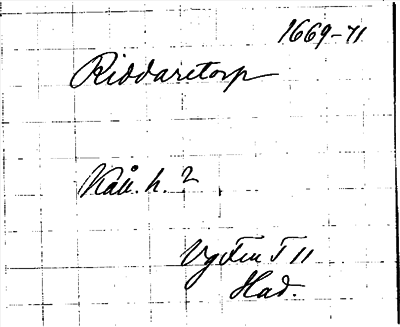 1669-71
Riddaretorp
Kåll. h. 2
Vg Fin T 11
Had.